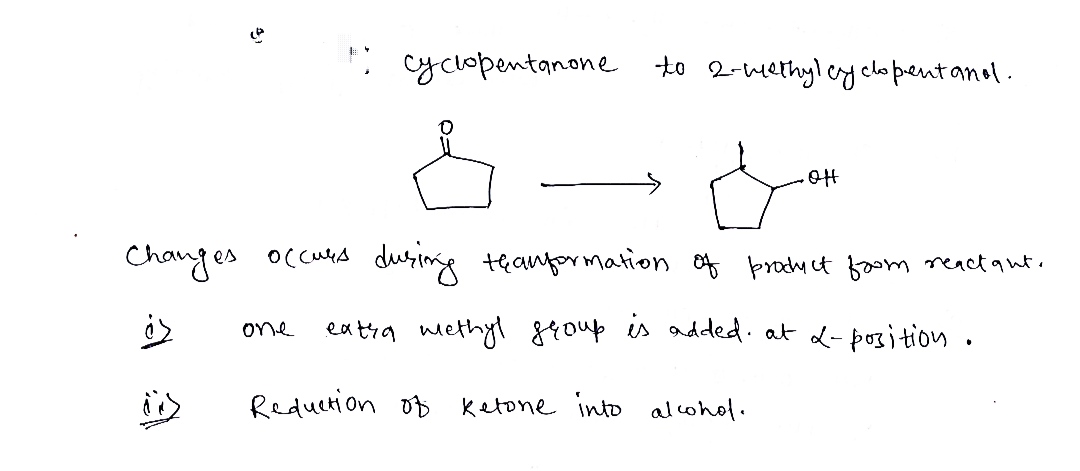 : cyclopentanone to 2-methylcyclopentanol.
O
OH
Changes occurs during tranformation of product from reactant.
i> one extra methyl group is added. at α-position.
ii> Reduction of ketone into alcohol.